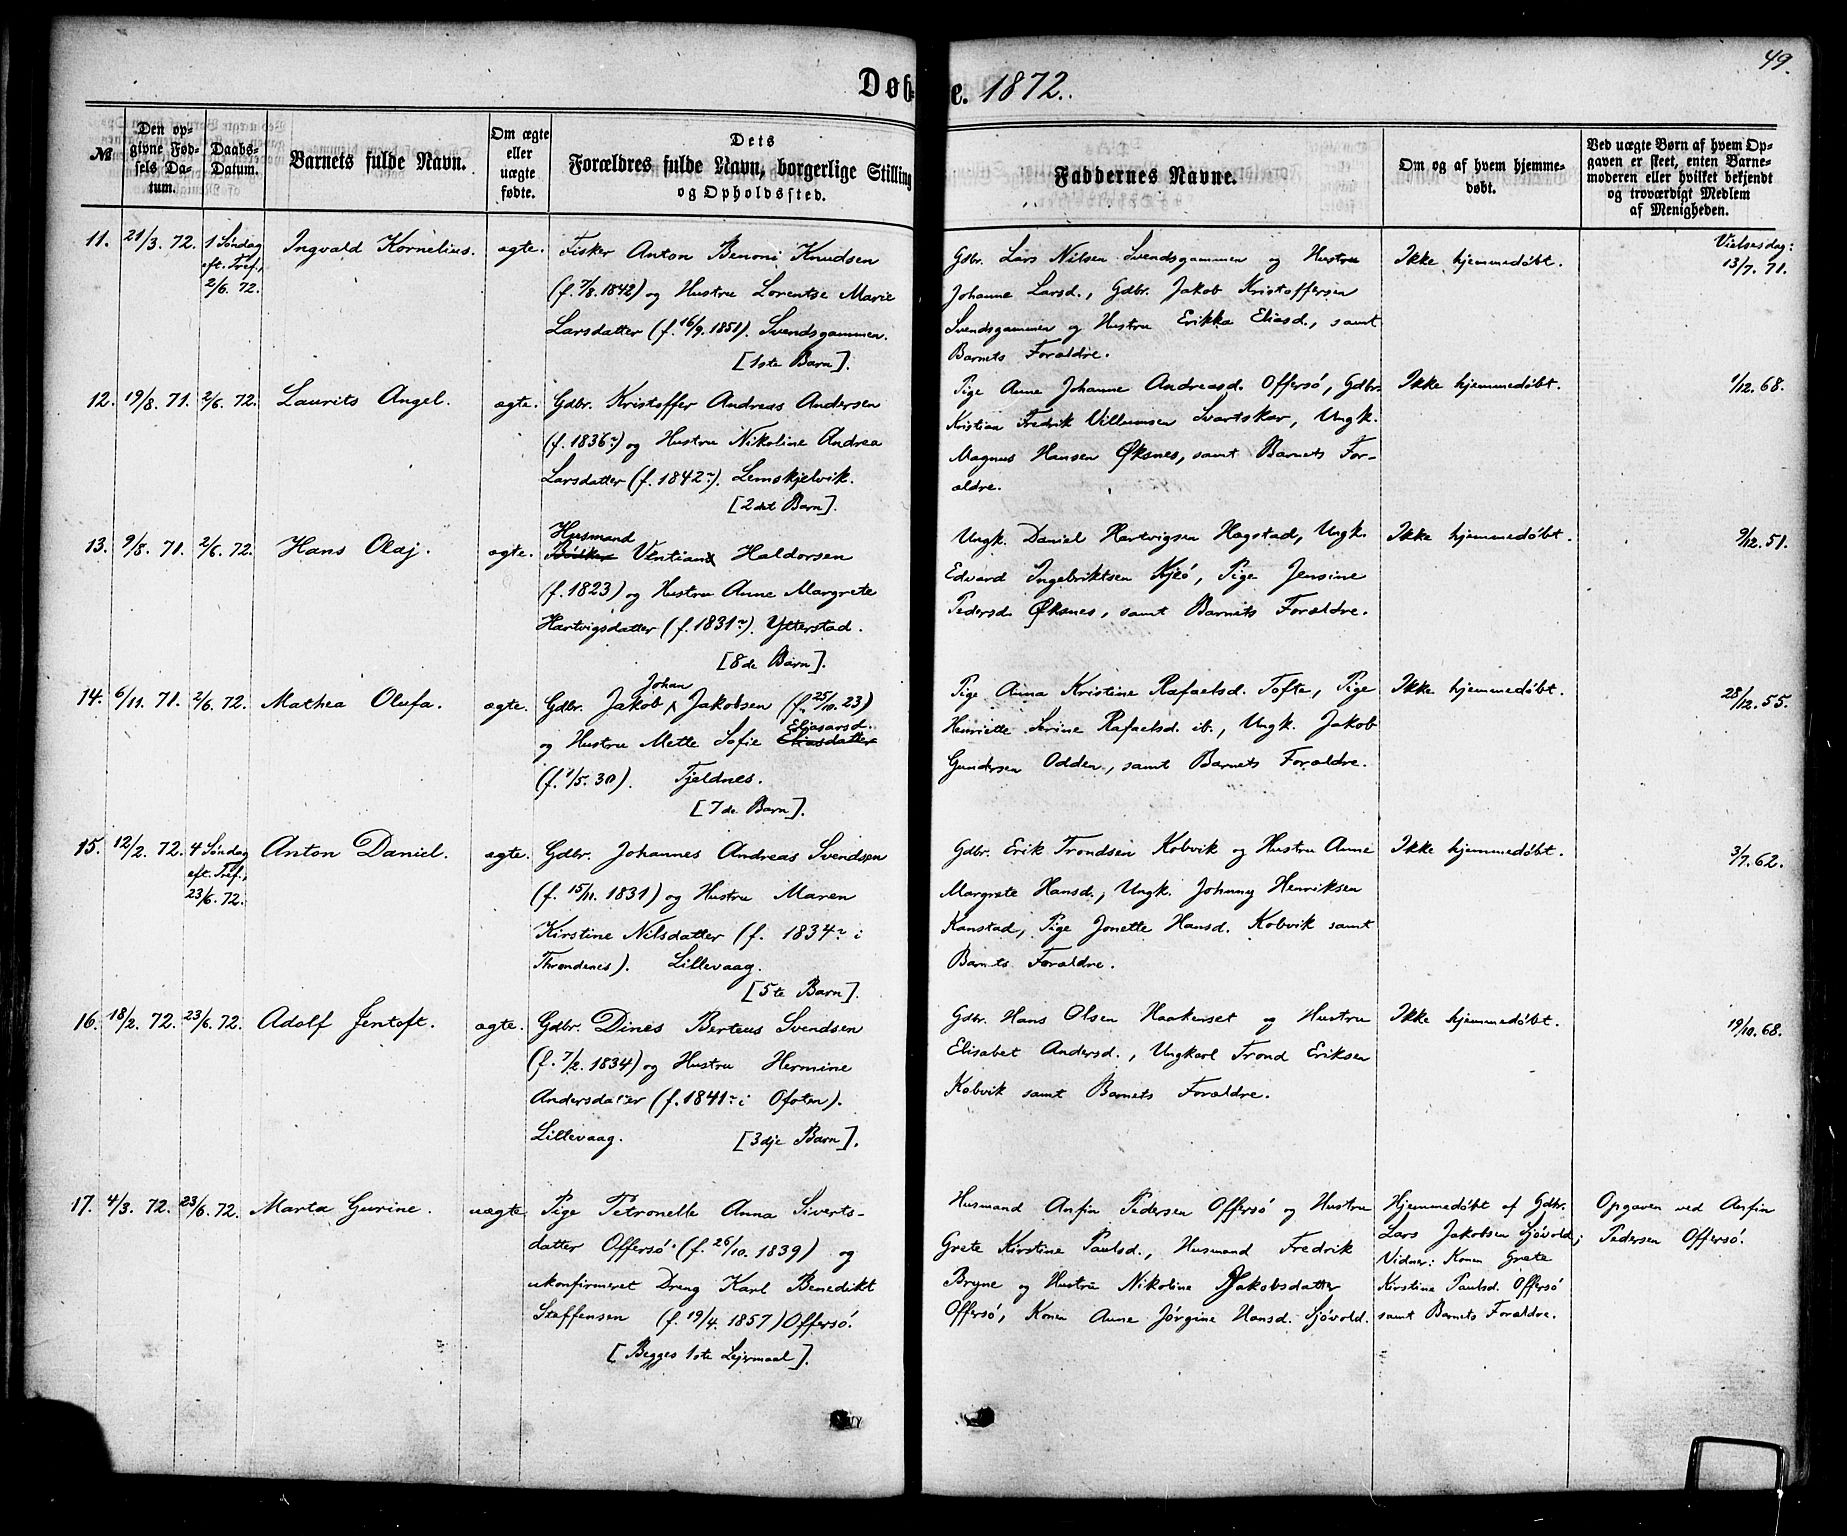 49.
Døbte. 1872.
№
Den opgivne Fødsels Datum.
Daabs-Datum.
Barnets fulde Navn.
Om ægte eller uægte fødte.
Dets Forældres fulde Navn, borgerlige Stilling og Opholdssted.
Faddernes Navne.
Om og af hvem hjemmedøbt.
Ved uægte Børn af hvem Opgaven er skeet, enten Barnemoderen eller hvilket bekjendt og troværdigt Medlem af Menigheden.
11. 21/3. 72. 1 Søndag eft. Tref., 2/6. 72. Ingvald Kornelius. ægte.
Fisker Anton Benoni Knudsen
(f. 7/8. 1842) og Hustru Lorentse Marie
Larsdatter (f. 16/9. 1851). Svendsgammen.
[1ste Barn].
Gdbr. Lars Nilsen Svendsgammen og Hustru
Johanne Larsd., Gdbr. Jakob Kristoffersen
Svendsgammen og Hustru Erikka Eliasd., samt
Barnets Forældre.
Ikke hjemmedøbt.
Vielsesdag:
13/7. 71.
12. 19/8. 71. 2/6. 72. Laurits Angel. ægte.
Gdbr. Kristoffer Andreas Andersen
(f. 1836~) og Hustru Nikoline Andrea
Larsdatter (f. 1842~). Lemskjelvik.
[2det Barn].
Pige Anne Johanne Andreasd. Offersø, Gdbr.
Kristian Fredrik Villumsen Svartskar, Ungk.
Magnus Hansen Øksnes, samt Barnets For-
ældre.
Ikke hjemmedøbt.
1/12. 68.
13. 9/8. 71. 2/6. 72. Hans Olaj. ægte.
Husmand
Bødker Ventian Haldorsen
(f. 1823) og Hustru Anne Margrete
Hartvigsdatter (f. 1831~). Ytterstad.
[8de Barn].
Ungk. Daniel Hartvigsen Hagstad, Ungk.
Edvard Ingebriktsen Kjeø, Pige Jensine
Pedersd. Øksnes, samt Barnets Forældre.
Ikke hjemmedøbt.
9/12. 51.
14. 6/11. 71. 2/6. 72. Mathea Olufa. ægte.
Johan
Gdbr. Jakob Jakobsen (f. 25/10. 23)
Eliasarsd.
og Hustru Mette Sofie Eliasdatter
(f. 1/5. 30). Fjeldnes.
[7de Barn].
Pige Anna Kristine Rafaelsd. Tofte, Pige
Henriette Serine Rafaelsd. ib., Ungk. Jakob
Gundersen Odden, samt Barnets Forældre.
Ikke hjemmedøbt.
28/12. 55.
15. 12/2. 72. 4 Søndag eft. Tref., 23/6. 72. Anton Daniel. ægte.
Gdbr. Johannes Andreas Svendsen
(f. 15/11. 1831) og Hustru Maren
Kirstine Nilsdatter (f. 1834~ i
Throndenes). Lillevaag.
[5te Barn].
Gdbr. Erik Trondsen Kobvik og Hustru Anne
Margrete Hansd., Ungk. Johnny Henriksen
Kanstad, Pige Jonette Hansd. Kobvik samt
Barnets Forældre.
Ikke hjemmedøbt.
3/7. 62.
16. 18/2. 72. 23/6. 72. Adolf Jentoft. ægte.
Gdbr. Dines Berteus Svendsen
(f. 7/2. 1834) og Hustru Hermine
Andersdatter (f. 1841~ i Ofoten).
Lillevaag. [3dje Barn].
Gdbr. Hans Olsen Haakenset og Hustru
Elisabet Andersd., Ungkarl Trond Eriksen
Kobvik samt Barnets Forældre.
Ikke hjemmedøbt.
19/10. 68.
17. 4/3. 72. 23/6. 72. Marta Gurine. uægte
Pige Petronelle Anna Siverts-
datter Offersø (f. 26/10. 1839) og
ukonfirmeret Dreng Karl Benedikt
Staffensen (f. 19/4. 1857) Offersø.
[Begges 1ste Lejermaal].
Husmand Anfin Pedersen Offersø og Hustru
Grete Kirstine Paulsd., Husmand Fredrik
Bryne og Hustru Nikoline Jakobsdatter
Offersø, Konen Anne Jørgine Hansd. Sjøvold.
Hjemmedøbt af Gdbr.
Lars Jakobsen Sjøvold;
Vidner: Konen Grete
Kirstine Paulsd. Offersø
samt Barnets Forældre.
Opgaven ved Anfin
Pedersen Offersø.